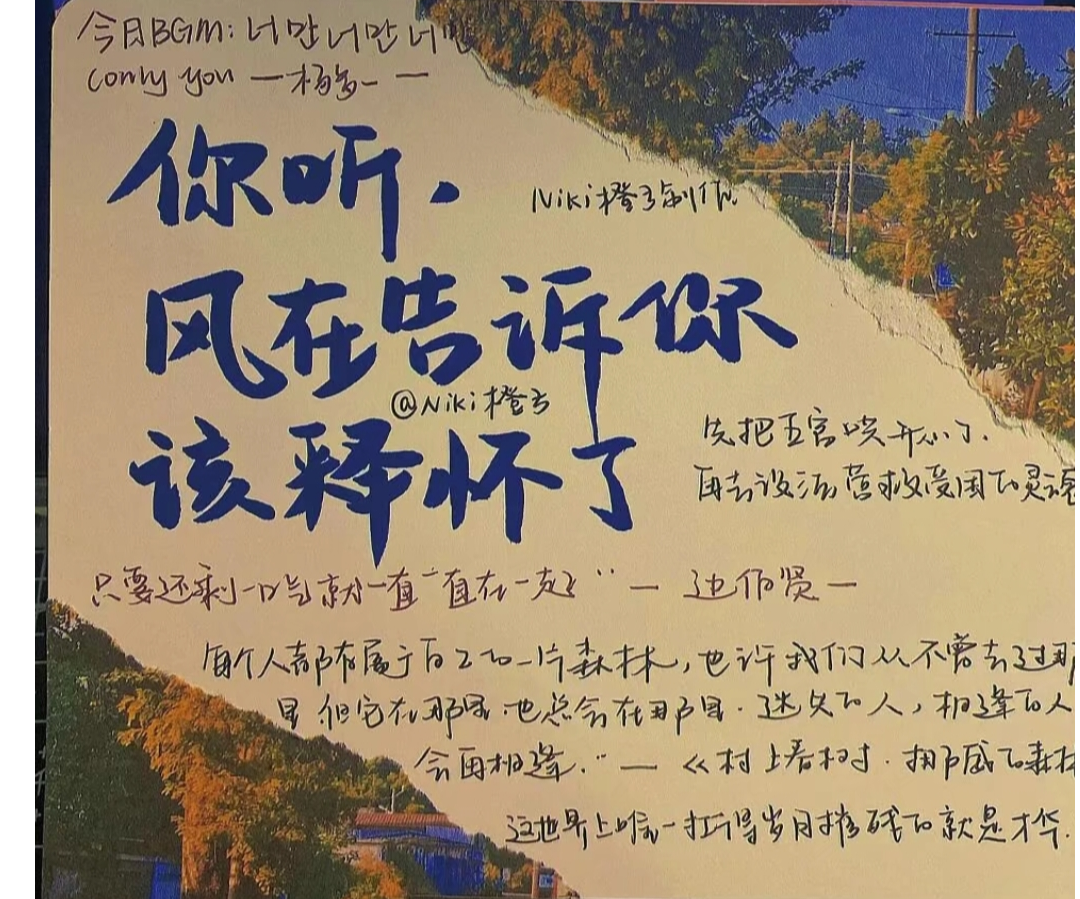 今日BGM：너만너만너만
(only you — 杨多一 —
你听.
Niki橙子制作.
风在告诉你
@Niki橙子
该释怀了
先把五官哭开心了.
再去设法营救受困的灵魂
只要还剩一口气就一直一直在一起” — 边伯贤 —
每个人都有属于自己的一片森林，也许我们从不曾去过那
里 但它在那里. 也总会在那里. 迷失的人，相逢的人
会再相逢.” — 《村上春树. 挪威的森林
这世界上唯一扛得岁月摧残的就是才华.